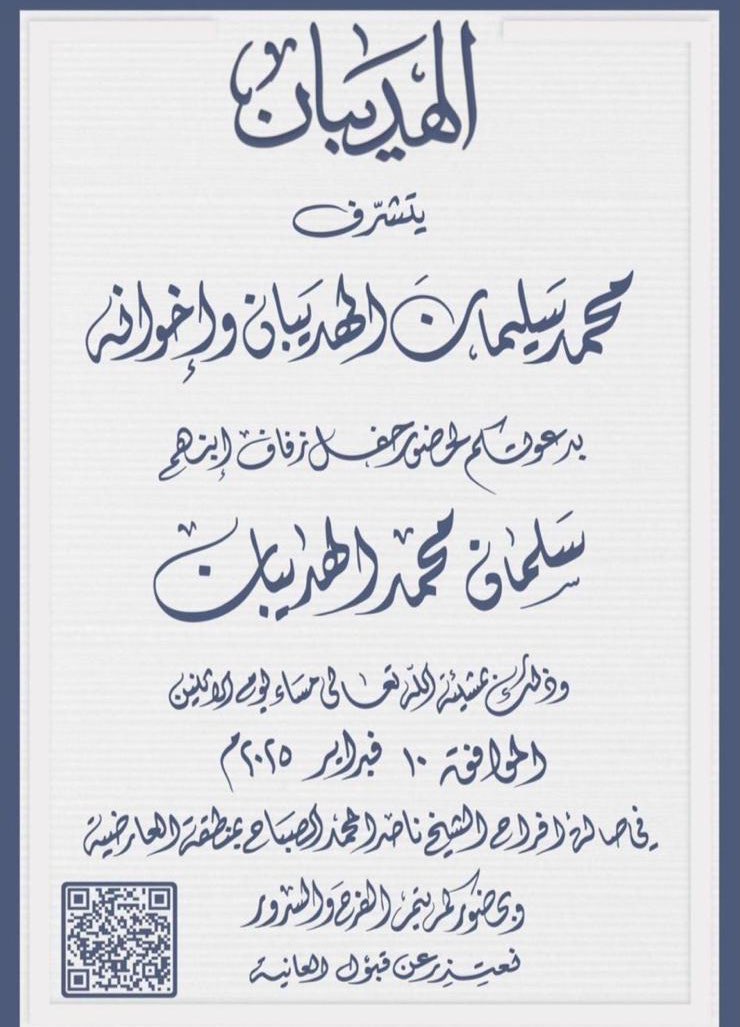 الهديبان
يتشرّف
محمد سليمان الهديبان وإخوانه
بدعوتكم لحضور حفل زفاف إبنهم
سلمان محمد الهديبان
وذلك بمشيئة الله تعالى مساء يوم الاثنين
الموافق ١٠ فبراير ٢٠٢٥م
في صالة افراح الشيخ ناصر المحمد الصباح بمنطقة العارضية
وبحضوركم يتم الفرح والسرور
نعتذر عن قبول العانية